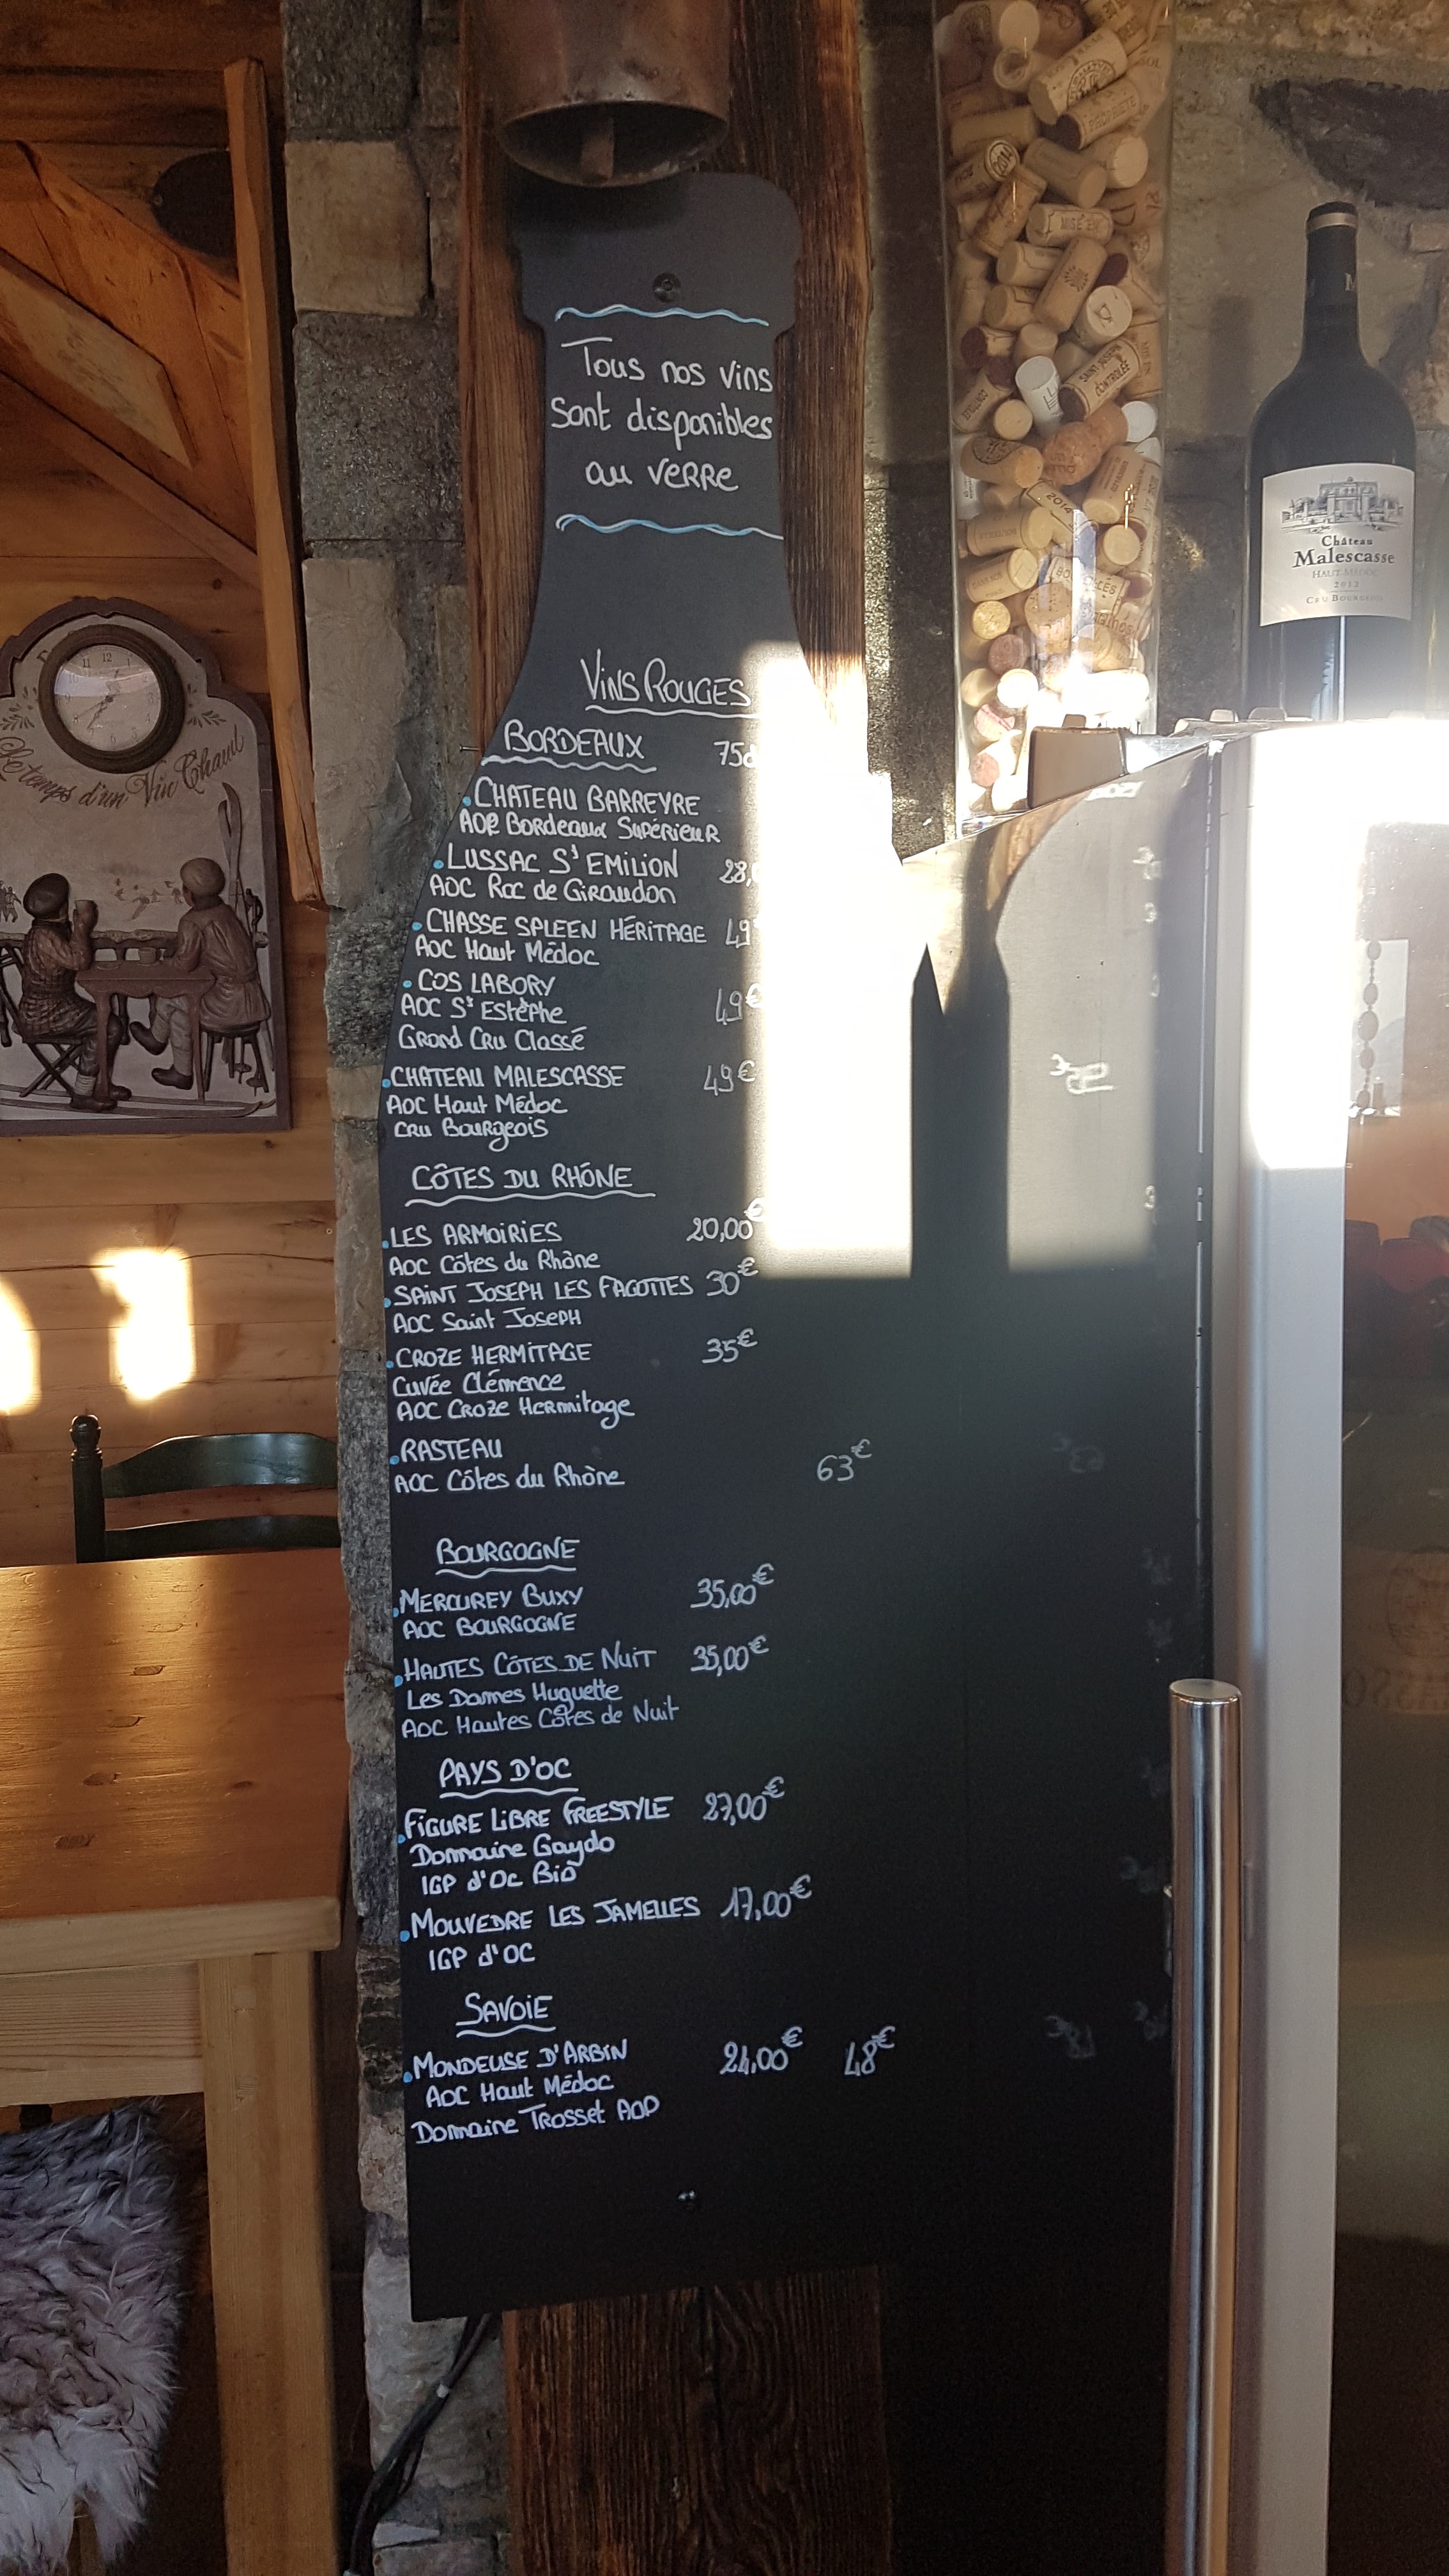 Tous nos vins
sont disponibles
au verre
VINS ROUGES
BORDEAUX 75c
CHATEAU BARREYRE
AOP Bordeaux Supérieur
LUSSAC St EMILION 28,
AOC Roc de Giraudon
CHASSE SPLEEN HÉRITAGE 49€
AOC Haut Médoc
COS LABORY
AOC St Estèphe 49€
Grand Cru Classé
CHATEAU MALESCASSE 49€
AOC Haut Médoc
Cru Bourgeois
CÔTES DU RHÔNE
LES ARMOIRIES 20,00€
AOC Côtes du Rhône
SAINT JOSEPH LES FAGOTTES 30€
AOC Saint Joseph
CROZE HERMITAGE 35€
Cuvée Clémence
AOC Croze Hermitage
RASTEAU
AOC Côtes du Rhône 63€
BOURGOGNE
MERCUREY BUXY 35,00€
AOC BOURGOGNE
HAUTES CÔTES DE NUIT 35,00€
Les Dames Huguette
AOC Hautes Côtes de Nuit
PAYS D'OC
FIGURE LIBRE FREESTYLE 27,00€
Domaine Gayda
IGP d'Oc Bio
MOUVEDRE LES JAMELLES 17,00€
IGP d'OC
SAVOIE
MONDEUSE D'ARBIN 24,00€ 48€
AOC Haut Médoc
Domaine Trosset AOP
Château
Malescasse
HAUT-MÉDOC
2012
CRU BOURGEOIS
Le temps d'un Vin Chaud
MIS EN
2014
2014
CONTROLÉE